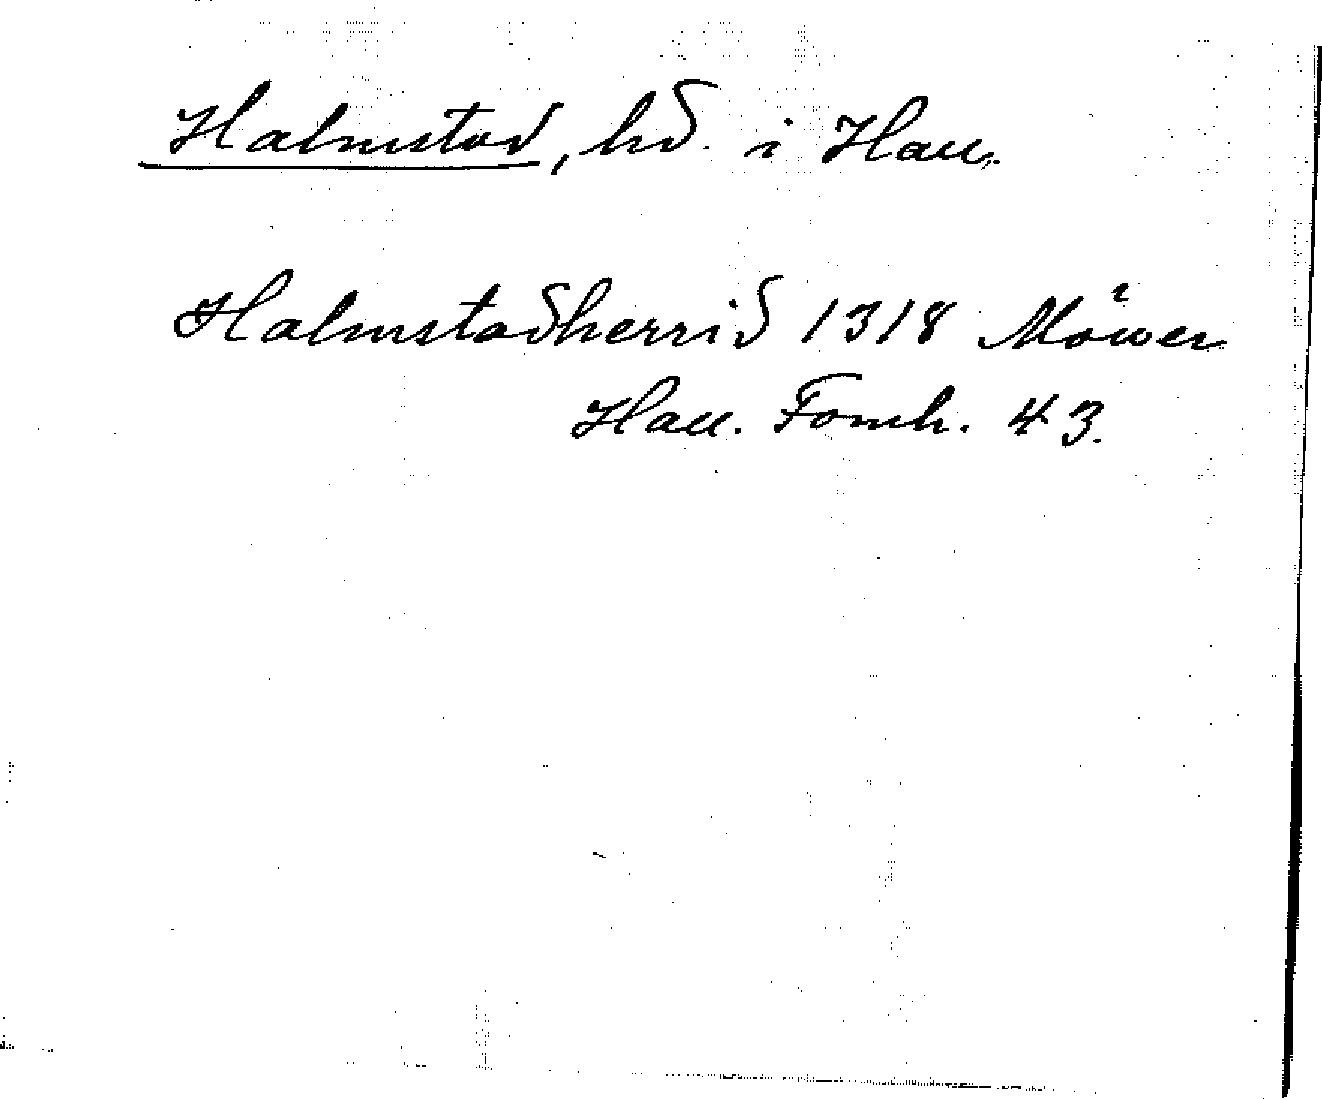 Halmstad, hd. i Hall.
Halmstadherrid 1318 Möwer
Hall. Fornh. 43.